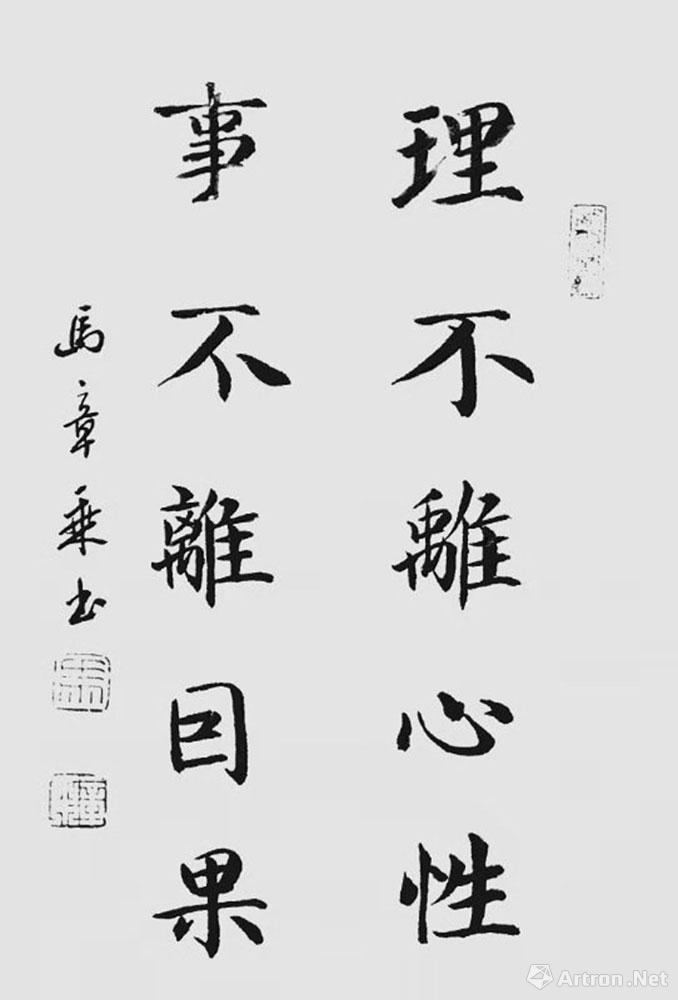 理不離心性
事不離因果
馬章乘书
Artron.Net